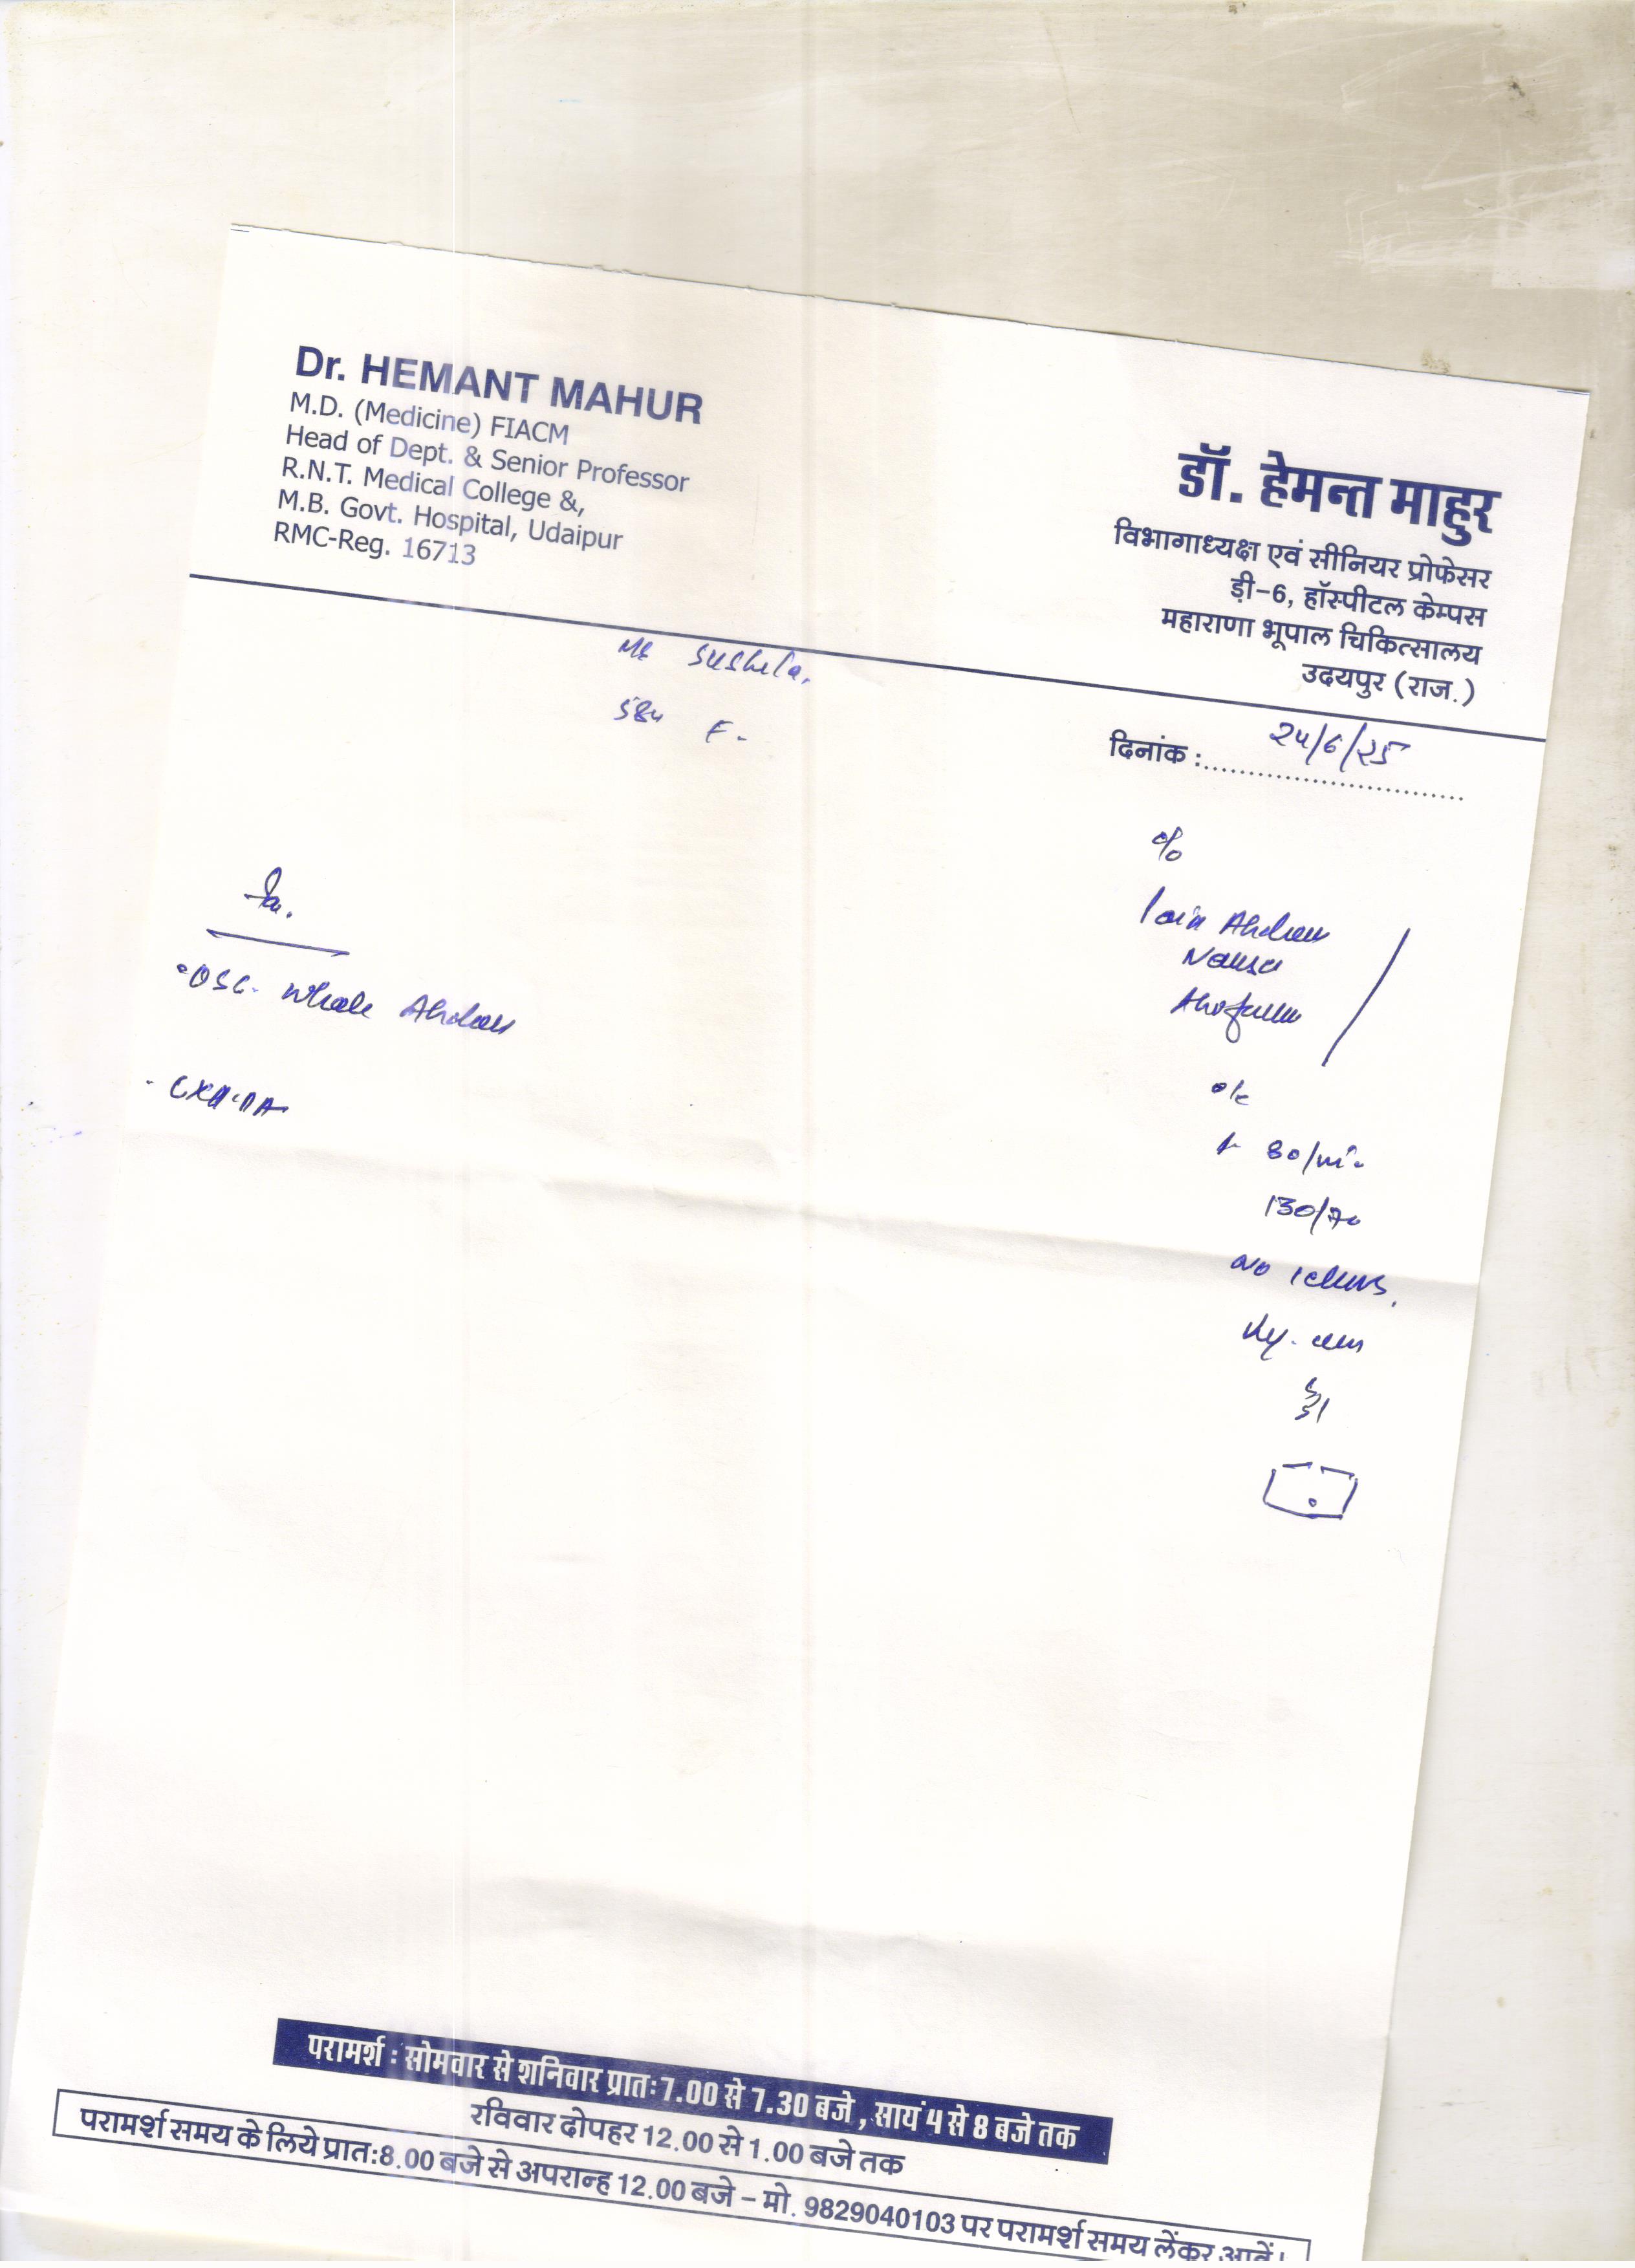 Dr. HEMANT MAHUR
M.D. (Medicine) FIACM
Head of Dept. & Senior Professor
R.N.T. Medical College &,
M.B. Govt. Hospital, Udaipur
RMC-Reg. 16713
डॉ. हेमन्त माहुर
विभागाध्यक्ष एवं सीनियर प्रोफेसर
ड़ी-6, हॉस्पीटल केम्पस
महाराणा भूपाल चिकित्सालय
उदयपुर (राज.)
Sushila.
58y F.
दिनांक : 24/6/25
c/o
Pain Abdomen
Nausea
o/e
P 80/min
130/70
No icterus.
USG. Whole Abdomen
- CXR PA
परामर्श : सोमवार से शनिवार प्रातः 7.00 से 7.30 बजे, सायं 4 से 8 बजे तक
रविवार दोपहर 12.00 से 1.00 बजे तक
परामर्श समय के लिये प्रातः8.00 बजे से अपरान्ह 12.00 बजे – मो. 9829040103 पर परामर्श समय लेंकर आवें।